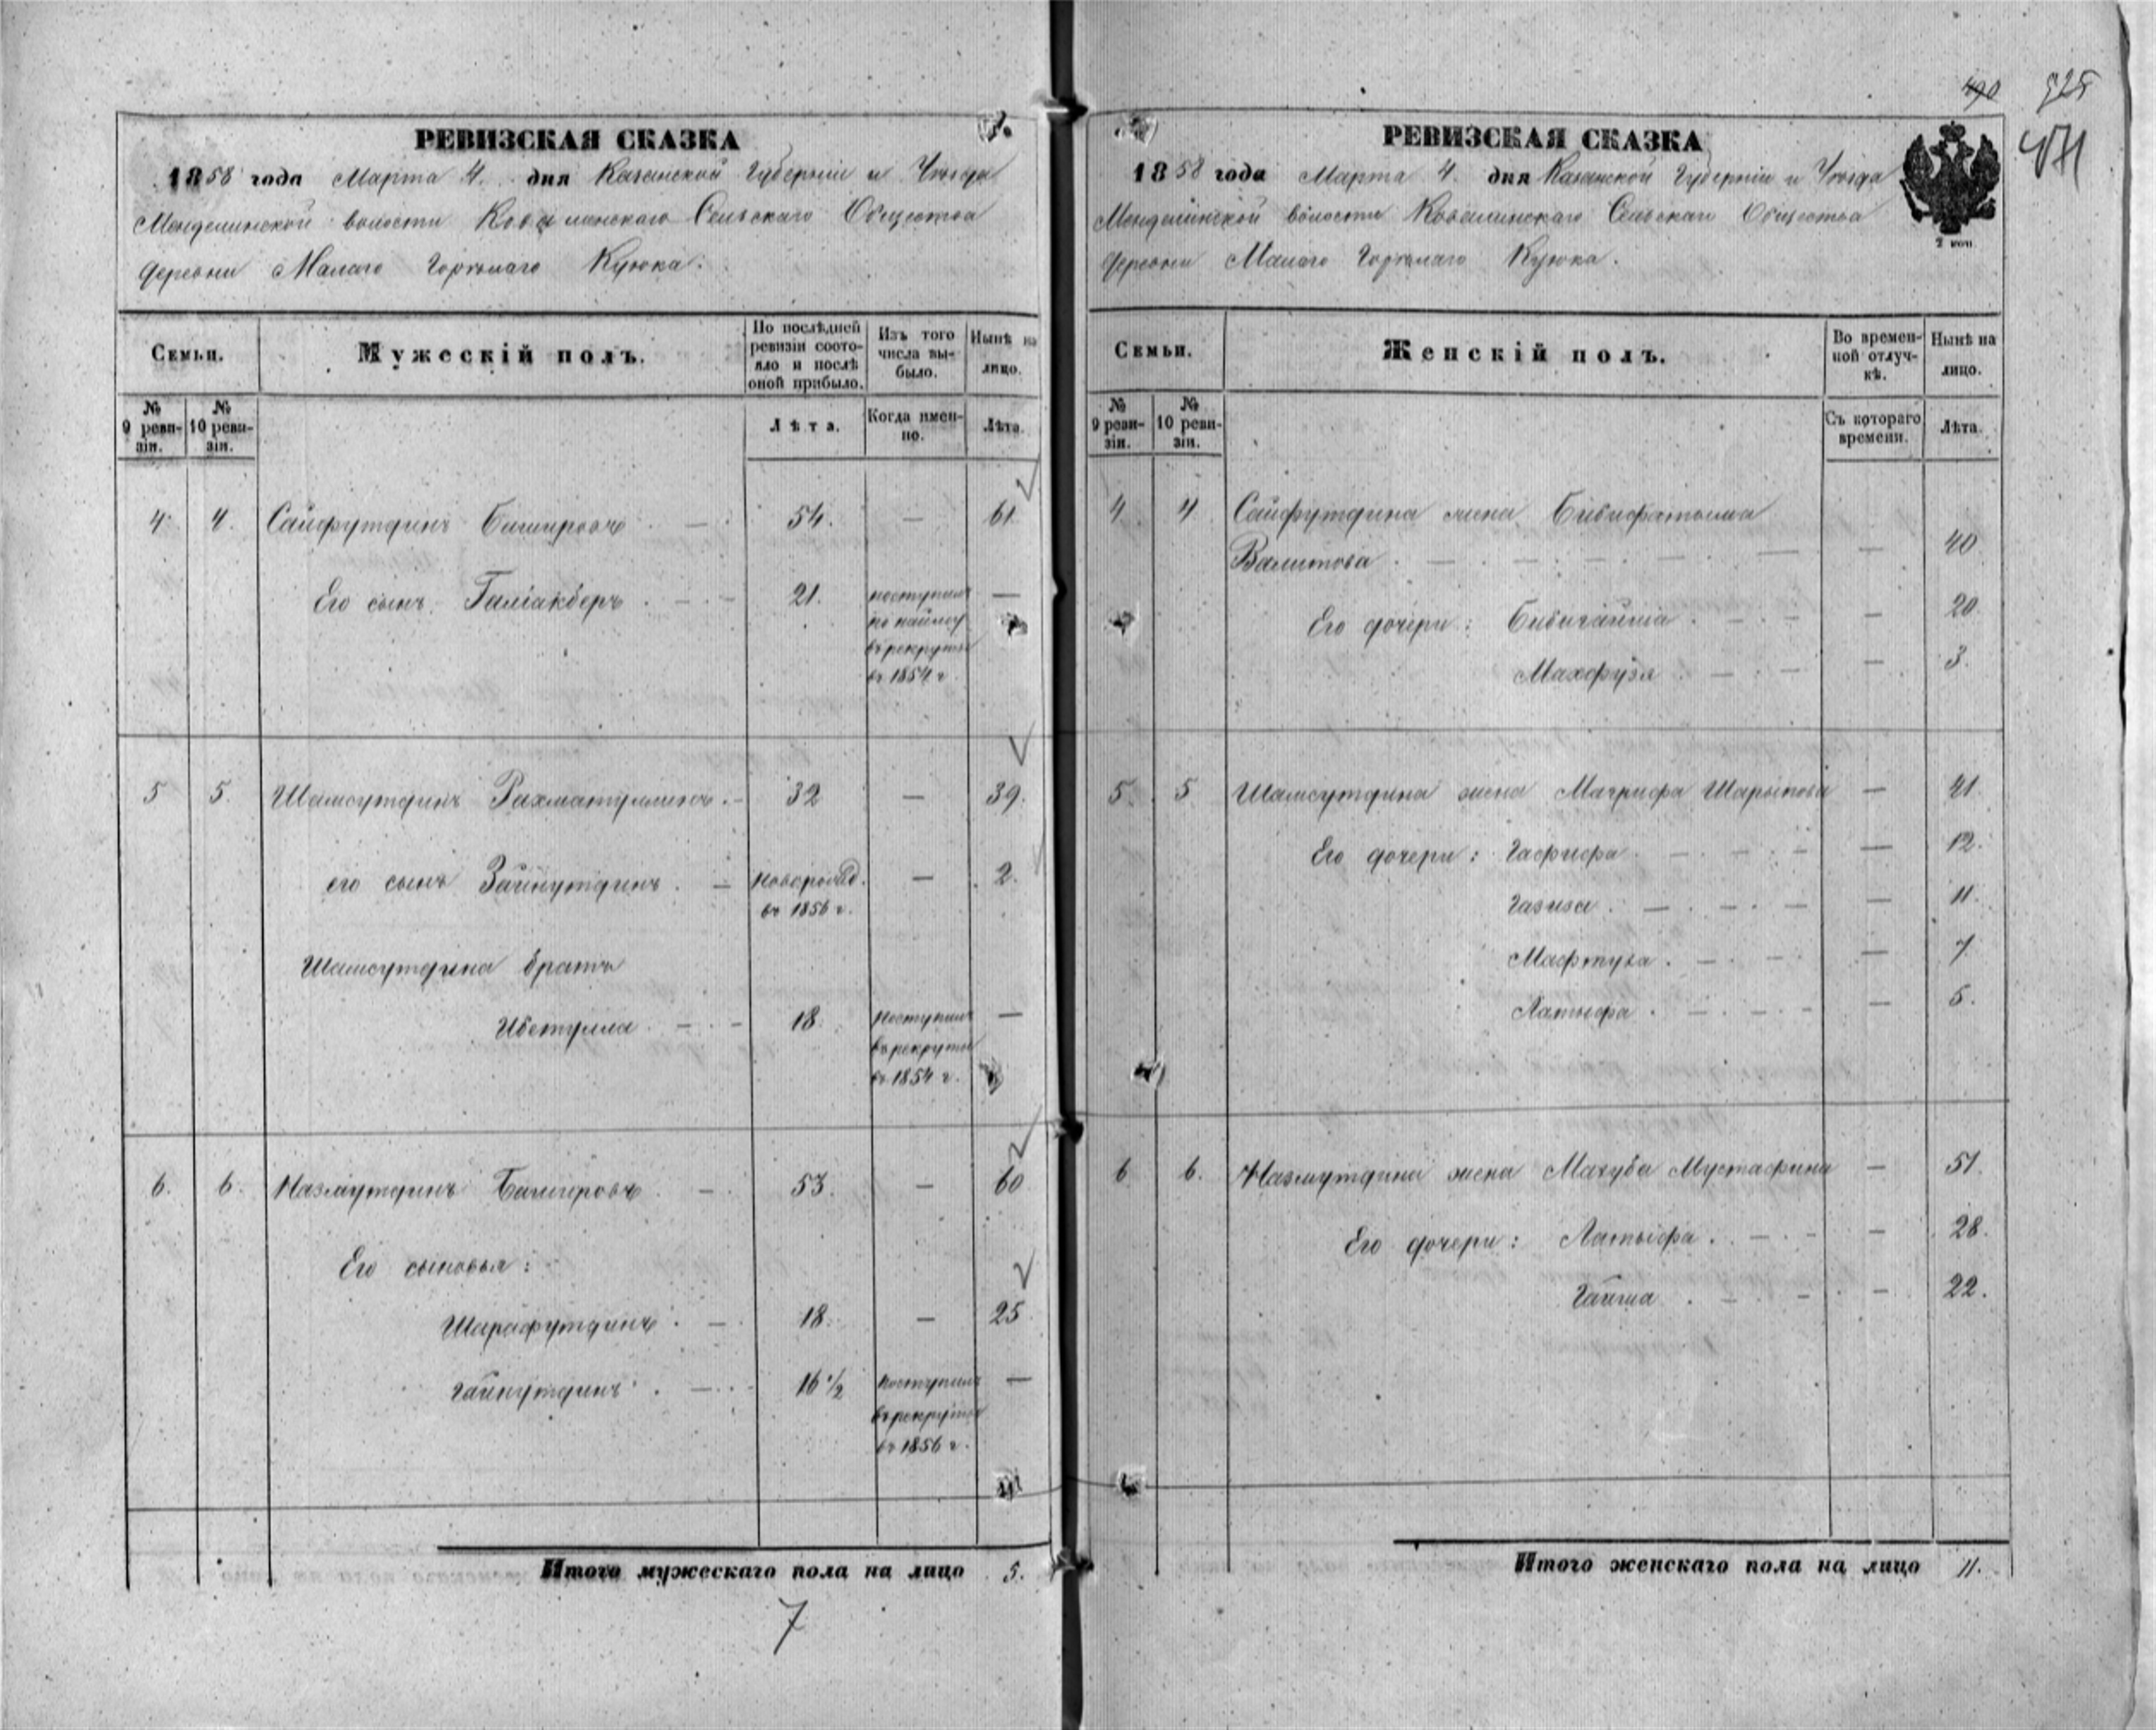 490 925
471
РЕВИЗСКАЯ СКАЗКА
1858 года Марта 4. дня Казанской Губерніи и Уѣзда
Менделинской волости Ковалинскаго Сельскаго Общества
деревни Малаго Горьтлаго Куюка.
Семьи.
Мужескій полъ.
По послѣдней
ревизіи состо-
яло и послѣ
оной прибыло.
Изъ того
числа вы-
было.
Нынѣ на
лицо.
№
9 реви-
зіи.
№
10 реви-
зіи.
Лѣта.
Когда имен-
но.
Лѣта.
4. 4. Сайфутдинъ Бишировъ 54. — 61
Его сынъ Галіакберъ 21. поступилъ —
по найму
въ рекруты
въ 1854 г.
5 5. Шамсутдинъ Рахматуллинъ 32 — 39.
его сынъ Зайнутдинъ. новорожд. — 2.
въ 1856 г.
Шамсутдина братъ
Ибетулла 18. поступилъ —
въ рекруты
въ 1854 г.
6. 6. Назмутдинъ Башировъ 53. — 60
Его сыновья:
Шарафутдинъ 18. — 25
Гайнутдинъ 16 1/2 поступилъ —
въ рекруты
въ 1856 г.
Итого мужескаго пола на лицо 5.
7
РЕВИЗСКАЯ СКАЗКА
1858 года Марта 4. дня Казанской Губерніи и Уѣзда
Менделинской волости Ковалинскаго Сельскаго Общества
деревни Малаго Горьтлаго Куюка.
2 коп
Семьи.
Женскій полъ.
Во времен-
ной отлуч-
кѣ.
Нынѣ на
лицо.
№
9 реви-
зіи.
№
10 реви-
зіи.
Съ котораго
времени.
Лѣта.
4 4 Сайфутдина жена Бибифатыма
Валитова — 40
Его дочери: Бибигайша — 20
Махфузя — 3.
5. 5 Шамсутдина жена Магрифа Шарыпова — 41.
Его дочери: Гафифа — 12.
Газиза — 11.
Мафтуха — 7.
Латыфа — 5.
6 6. Назмутдина жена Магуба Мустафина — 51.
Его дочери: Латыфа — 28.
Гайша — 22.
Итого женскаго пола на лицо 11.